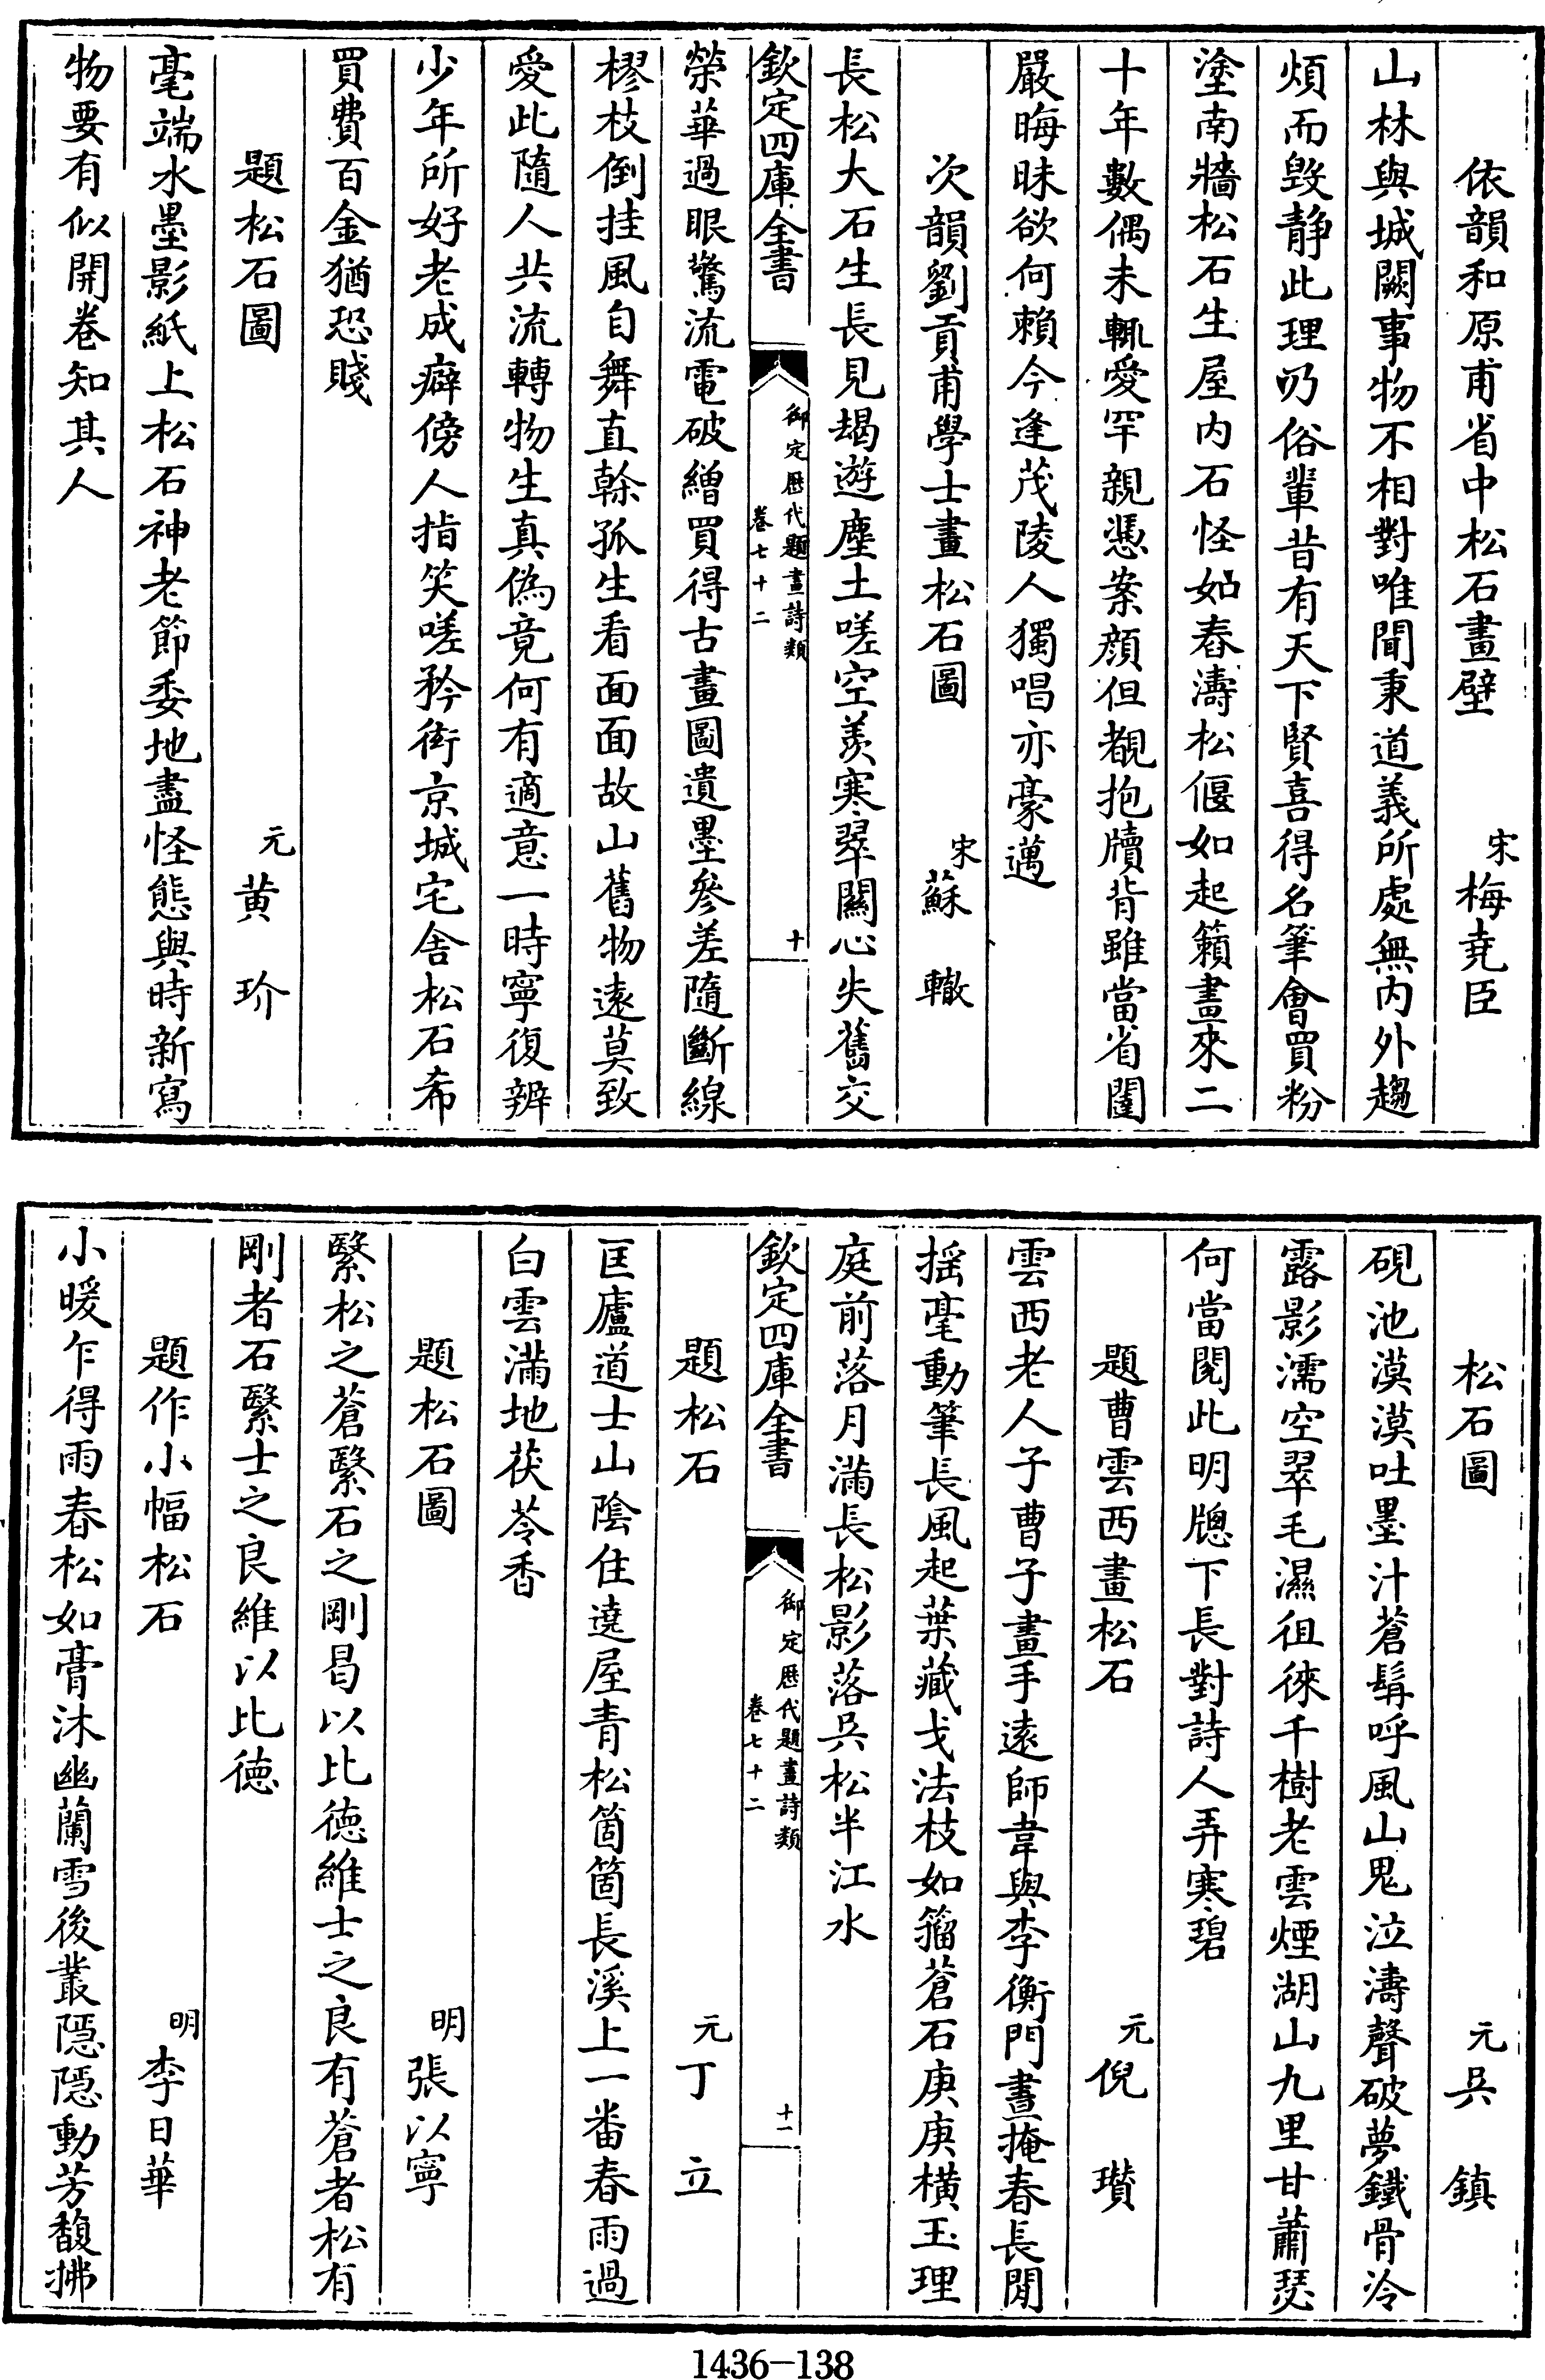 依韻和原甫省中松石畫壁　宋梅堯臣
山林與城闕事物不相對唯聞秉道義所處無内外趨
煩而毁静此理乃俗輩昔有天下賢喜得名筆會買粉
塗南牆松石生屋内石怪如舂濤松偃如起籟畫來二
十年數偶未輒愛罕親憑案顔但覩抱牘背雖當省闥
嚴晦昧欲何賴今逢茂陵人獨唱亦豪邁
次韻劉貢甫學士畫松石圖　宋蘇轍
長松大石生長見朅遊塵土嗟空羡寒翠關心失舊交
欽定四庫全書
御定歴代題畫詩類
卷七十二
十
榮華過眼驚流電破繒買得古畫圖遺墨參差隨斷線
樛枝倒挂風自舞直榦孤生看面面故山舊物遠莫致
愛此隨人共流轉物生真偽竟何有適意一時寧復辨
少年所好老成癖傍人指笑嗟矜衒京城宅舍松石希
買費百金猶恐賤
題松石圖　元黄玠
毫端水墨影紙上松石神老節委地盡怪態與時新寫
物要有似開卷知其人
松石圖　元吳鎮
硯池漠漠吐墨汁蒼髯呼風山鬼泣濤聲破夢鐵骨冷
露影濡空翠毛濕徂徠千樹老雲煙湖山九里甘蕭瑟
何當閱此明牕下長對詩人弄寒碧
題曹雲西畫松石　元倪瓚
雲西老人子曹子畫手遠師韋與李衡門晝掩春長閒
揺毫動筆長風起葉藏戈法枝如籀蒼石庚庚横玉理
庭前落月滿長松影落吳松半江水
欽定四庫全書
御定歴代題畫詩類
卷七十二
十一
題松石　元丁立
匡廬道士山陰住遶屋青松箇箇長溪上一番春雨過
白雲滿地茯苓香
題松石圖　明張以寧
繄松之蒼繄石之剛曷以比徳維士之良有蒼者松有
剛者石繄士之良維以比徳
題作小幅松石　明李日華
小暖乍得雨春松如膏沐幽蘭雪後叢隠隠動芳馥拂
1436-138